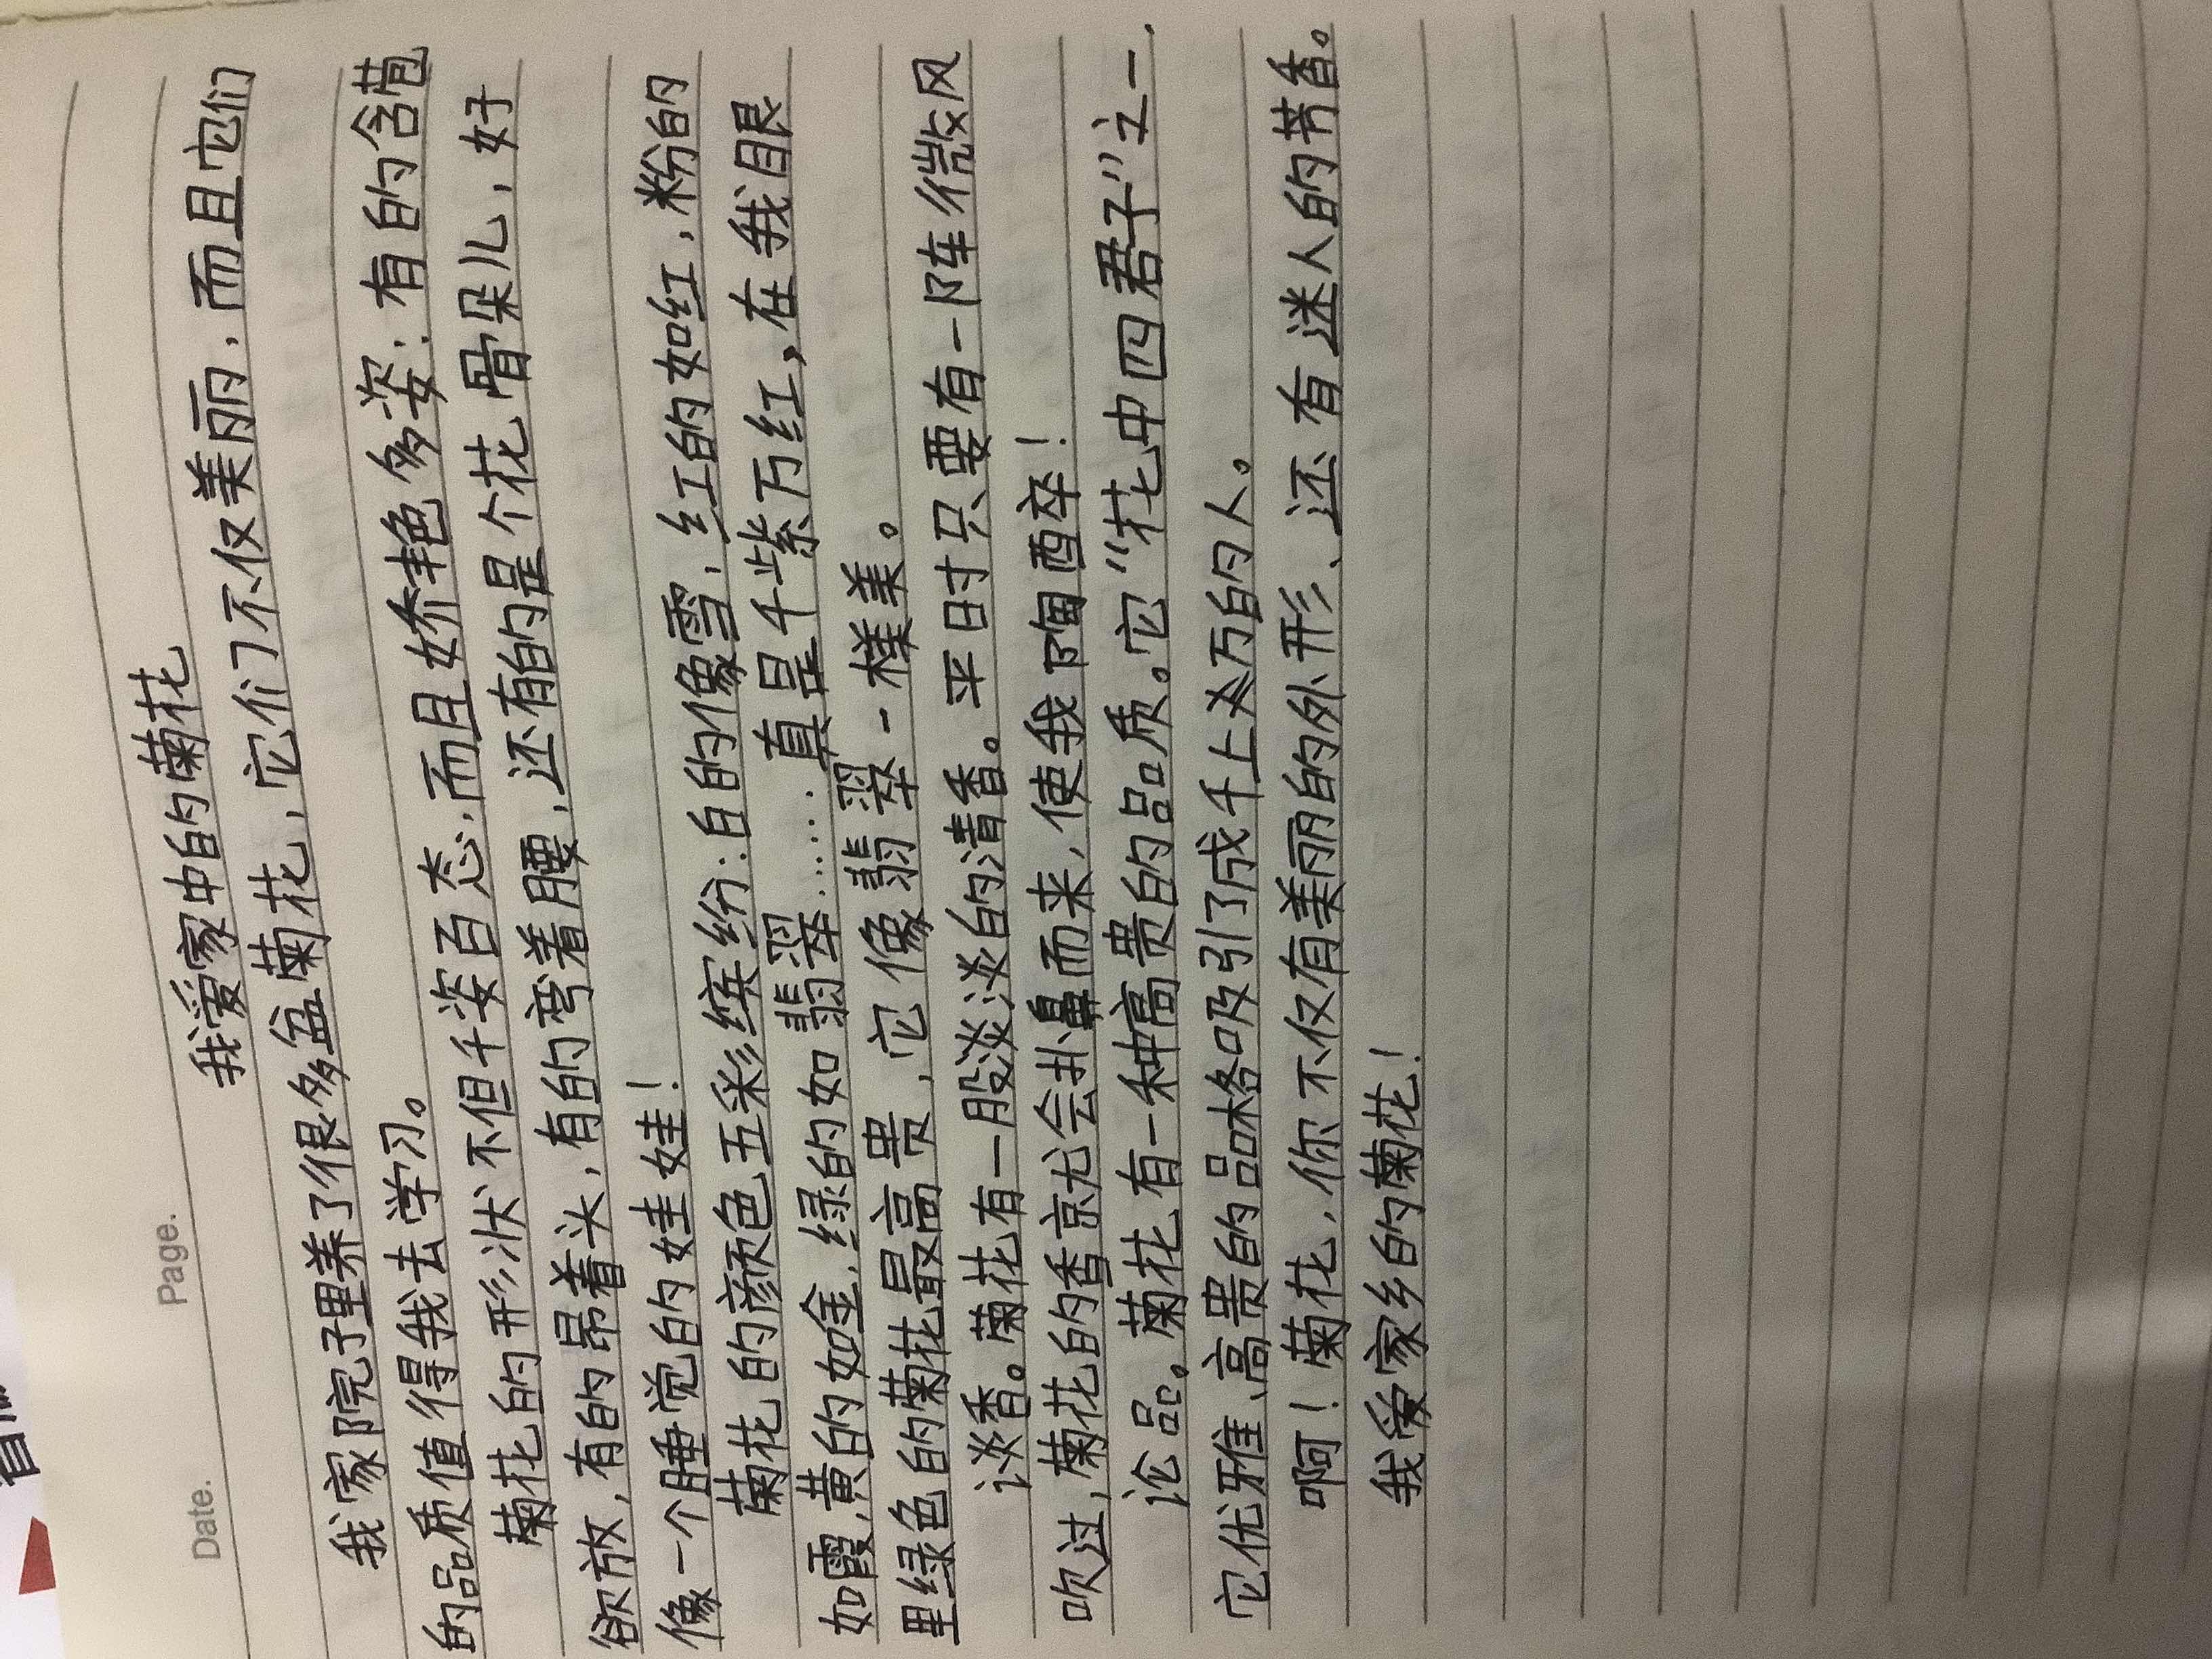 Date.  Page.
我爱家中的菊花
我家院子里养了很多盆菊花，它们不仅美丽，而且它们
的品质值得我去学习。
菊花的形状不但千姿百态，而且娇艳多姿：有的含苞
欲放，有的昂着头，有的弯着腰，还有的是个花骨朵儿，好
像一个睡觉的娃娃！
菊花的颜色五彩缤纷：白的像雪，红的如红，粉的
如霞，黄的如金，绿的如翡翠……真是千紫万红，在我眼
里绿色的菊花最高贵，它像翡翠一樣美。
谈香。菊花有一股淡淡的清香。平日时只要有一阵微风
吹过，菊花的香就会扑鼻而来，使我陶醉！
论品。菊花有一种高贵的品质。它“花中四君子”之一，
它优雅、高贵的品格吸引了成千上万的人。
啊！菊花，你不仅有美丽的外形、还有迷人的芳香。
我爱家乡的菊花！